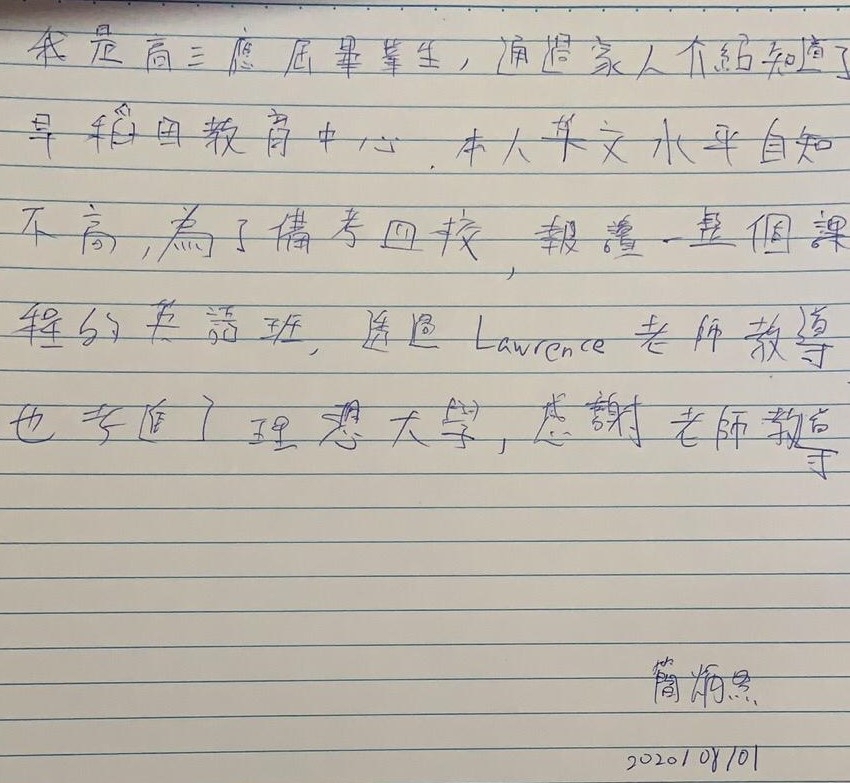 我是高三應屆畢業生，通過家人介紹知道了
早稻田教育中心．本人英文水平自知
不高，為了備考四校，報讀一整個課
程的英語班，透過 Lawrence 老師教導
也考進了理想大學，感謝老師教導
簡炳
2020/08/01